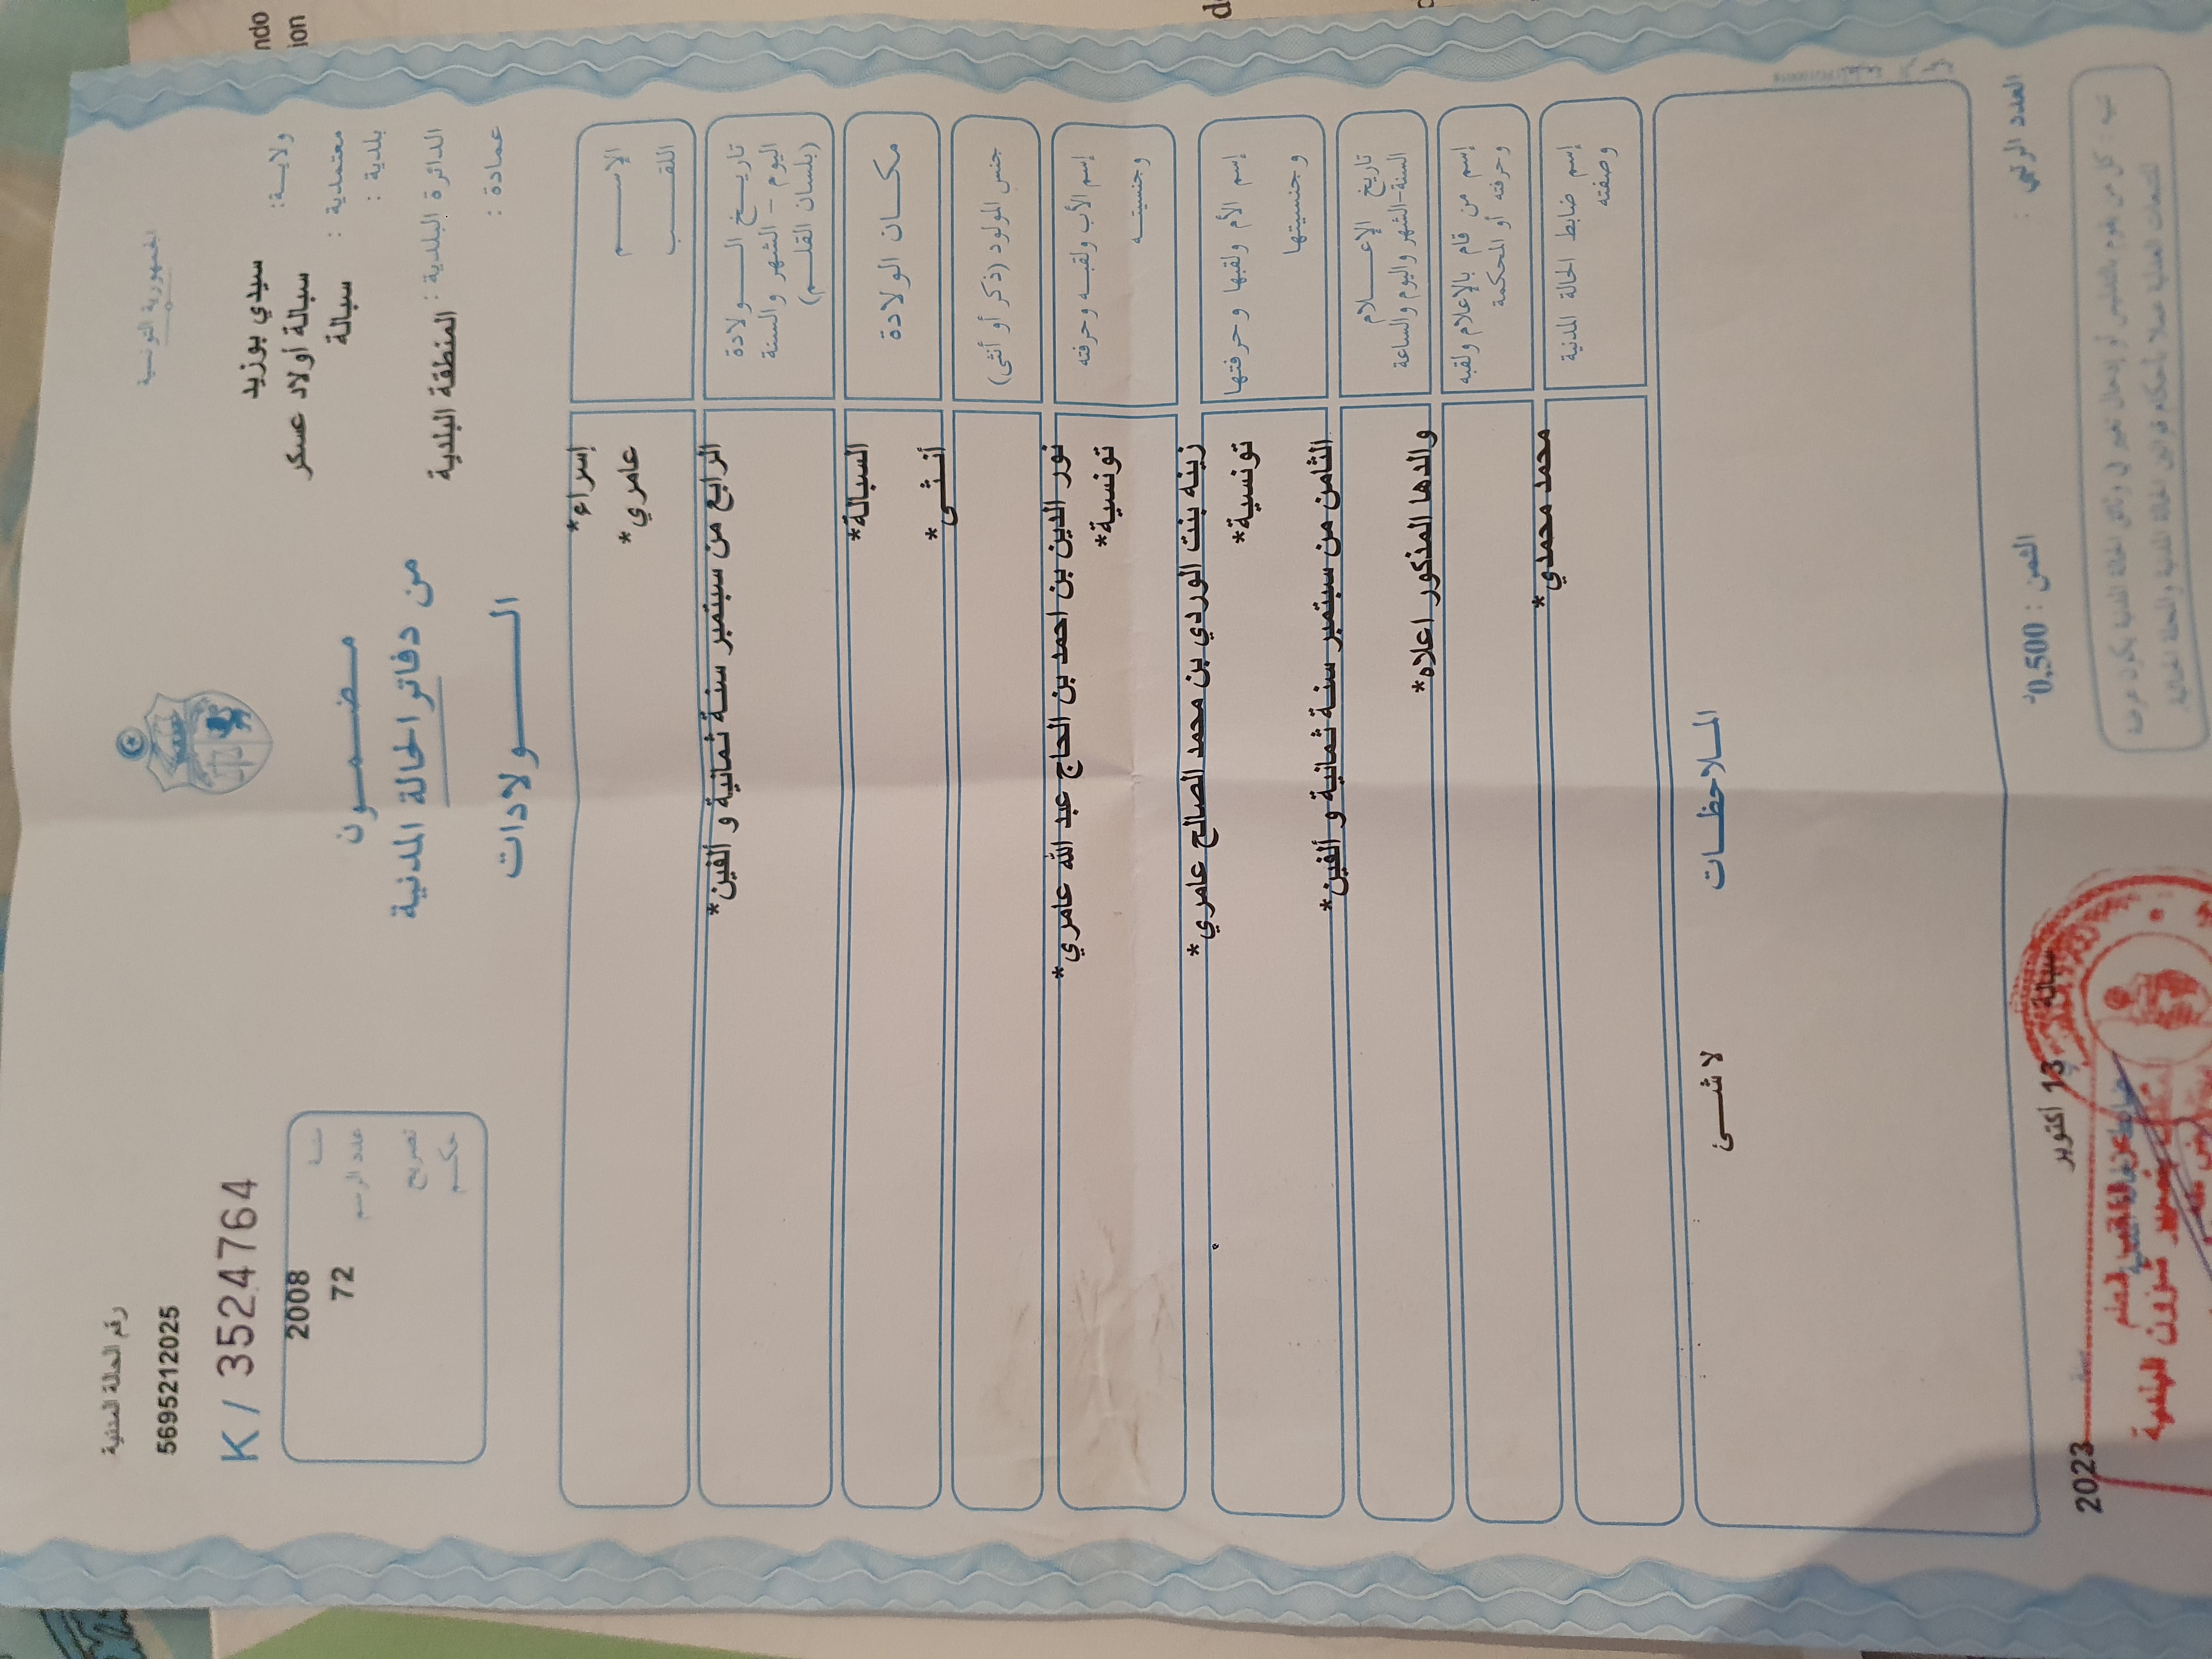 الجمهورية التونسية
ولايـــة: سيدي بوزيد
معتمدية : سبالة أولاد عسكر
بلدية : سبالة
الدائرة البلدية : المنطقة البلدية
عمادة :
مـــضـــمـــون
من دفاتر الحالة المدنية
الــــــولادات
رقم الحالة المدنية
5695212025
K / 3524764
سنة 2008
عدد الرسم 72
تصريح
حكـــم
الإســــم إسراء*
اللقــــب عامري*
تاريـــخ الـــــولادة
اليوم - الشهر والسنة
(بلسان القلـــم)
الرابع من سبتمبر سنة ثمانية و ألفين*
مكـــان الولادة السبالة*
جنس المولود (ذكر أو أنثى) أنـــثى*
إسم الأب ولقبـــه وحرفته نور الدين بن احمد بن الحاج عبد الله عامري*
وجنسيتـــه تونسية*
إسم الأم ولقبها وحرفتها زينه بنت الوردي بن محمد الصالح عامري*
وجنسيتها تونسية*
تاريخ الإعـــــلام
السنة-الشهر واليوم والساعة
الثامن من سبتمبر سنة ثمانية و ألفين*
إسم من قام بالإعلام ولقبه
وحرفته أو المحكمة
والدها المذكور اعلاه*
إسم ضابط الحالة المدنية
وصفته
محمد محمدي*
الملاحظـــات
لا شـــئ
العدد الرتبي :
الثمن : 0,500د
سبالة 13 اكتوبر 2023
سنة
تنبيه : كل من يقوم بالتدليس أو إدخال تغيير في وثائق الحالة المدنية يكون عرضة
للتتبعات العدلية عملا بأحكام قوانين الحالة المدنية والمجلة الجزائية